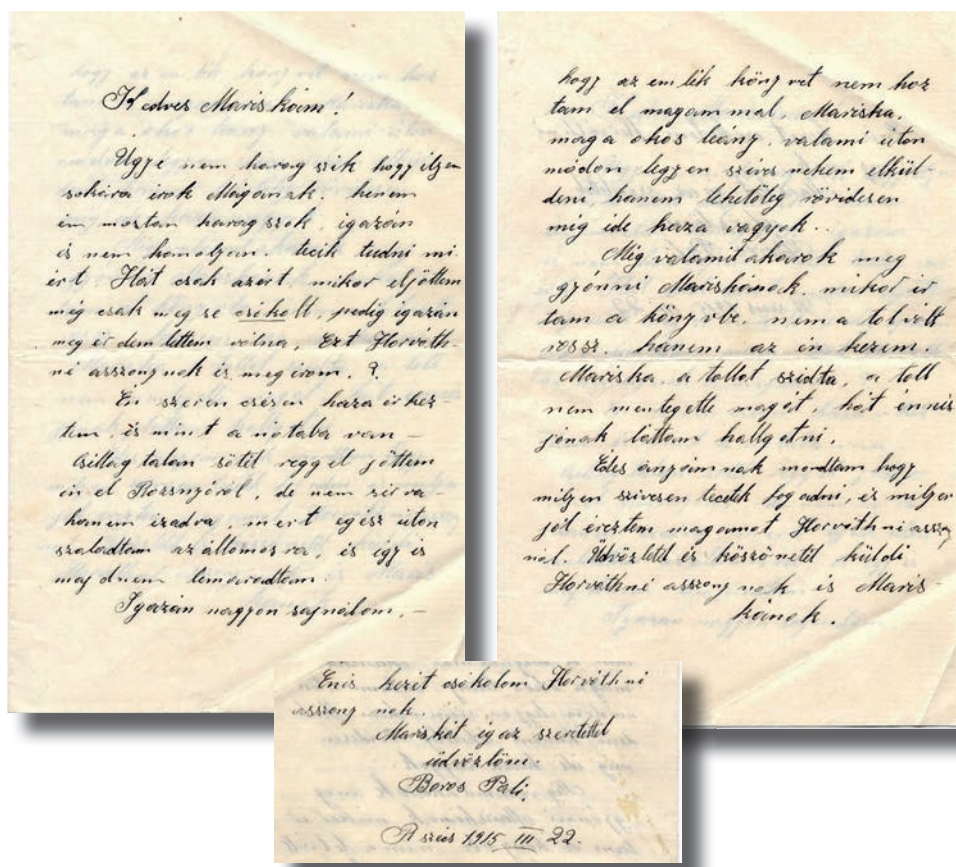 Kedves Mariskám!
Ugye nem harag szik hogy ilyen
sokára irok Magának. henem
én mostan harag szok, igazán
és nem komolyan. tecik tudni mi
ért. Hát csak azért, mikor eljöttem
még csak meg se csókolt, pedig igazán
meg ér dem lettem volna, Ezt Horváth-
né asszony nak is meg irom. ?
Én szeren csésen haza érkez-
tem, és mint a nótába van –
Csillag talan sötét regg el jöttem
én el Rozsnyóról, de nem sirva-
hanem izadva, mert egész úton
szaladtam az állomás ra, és így is
maj dnem lemaradtam.
Igazán nagyon sajnálom, –
hogy az em lék köny vet nem hoz
tam el magam mal, Mariska,
maga okos leány, valami úton
módon legy en szíves nekem elkül-
deni, hanem lehetőleg rövidesen
míg ide haza vagyok..
Még valamit akarok meg
gyónni Mariskának, mikor ir
tam a köny vbe, nem a tol vólt
rossz, hanem az én kezem.
Mariska, a tollat szidta, a toll
nem mentegette magát, hát énnis
jónak láttam hallgatni.
Édes anyám nak mondtam hogy
milyen szivesen tecetek fog adni, és milyen
jól éreztem magamat Horváthné asszony
nál. Üdvözletét és köszönetét küldi
Horváthné asszony nak és Maris-
kának.
Énis kezét csókolom Horváthné
asszony nak.
Mariskát ig az szeretettel
üdvözlöm.
Boros Pali.
R szécs 1915 III 22.